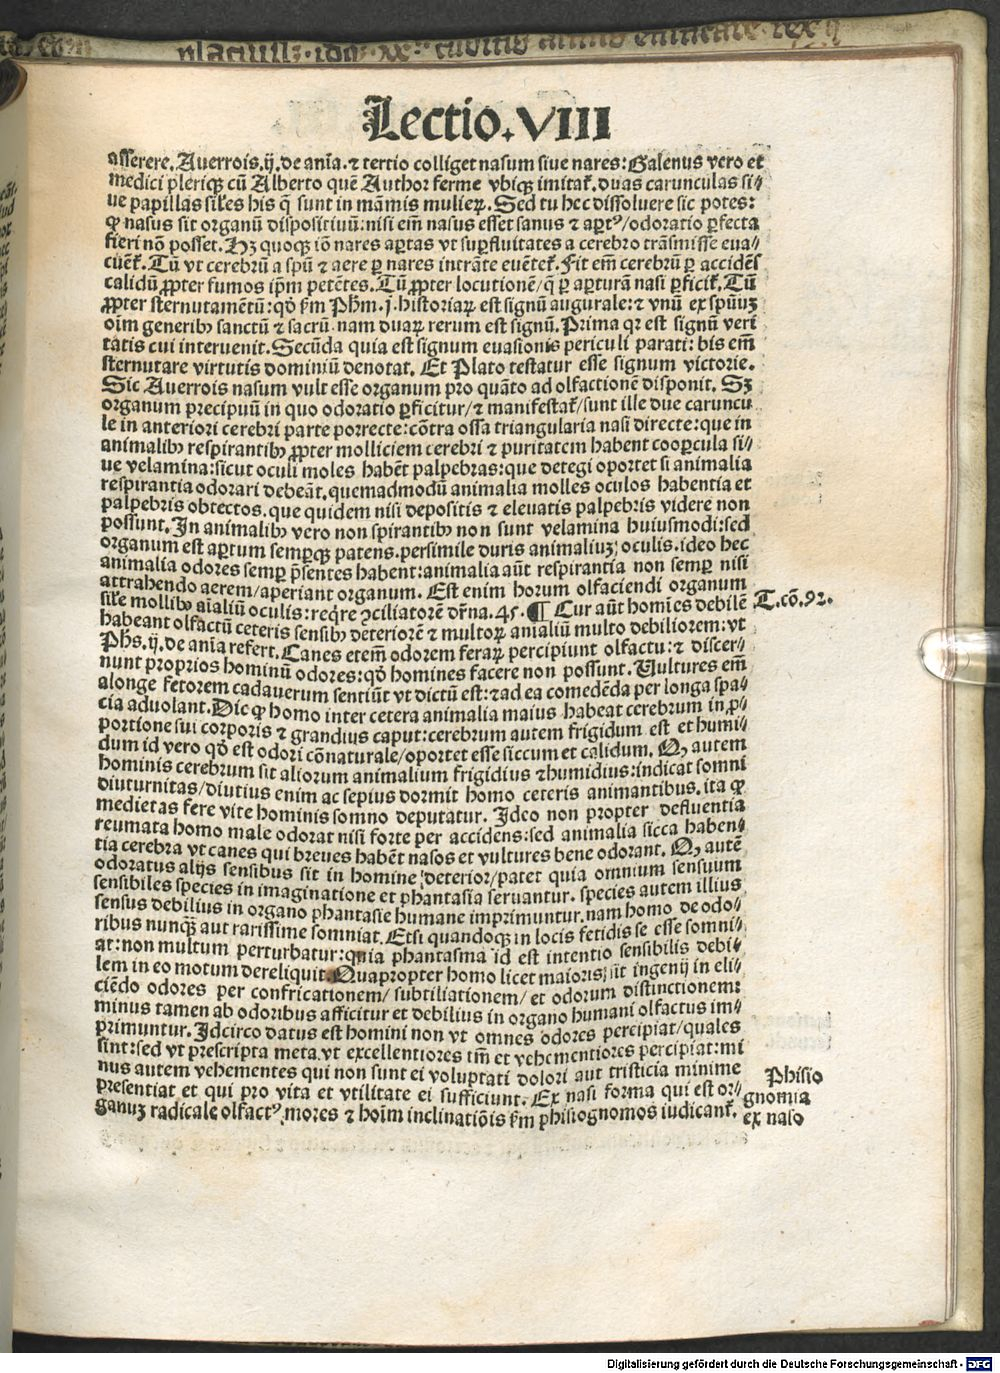 Lectio.VIII
asserere. Auerrois.ij.de aīa.⁊ tertio colliget nasum siue nares: Galenus vero et
medici pleriqꝫ cū Alberto quē Author ferme vbiqꝫ imitat̄.duas carunculas si⸗
ue papillas siles his q̄ sunt in māmis mulieꝝ. Sed tu hec dissoluere sic potes:
ꝙ nasus sit organū dispositiuū:nisi em̄ nasus esset sanus ⁊ aꝑtꝰ/odoratio ꝑfecta
fieri nō posset. Hꝫ quoqꝫ iō nares aꝑtas vt suꝑfluitates a cerebro trāsmisse eua⸗
cuēt̄. Tū vt cerebrū a spū ⁊ aere ꝑ nares intrāte euētet̄. Fit em̄ cerebrū ꝑ accidēs
calidū ꝓpter fumos ip̄m petētes. Tū ꝓpter locutionē/q̄ ꝑ aꝑturā nasi ꝑficit̄. Tū
ꝓpter sternutamētū:qḋ ẜm Ph̄m.j.historiaꝝ est signū augurale:⁊ vnū ex spūuꝫ
oīm generibꝰ sanctū ⁊ sacrū.nam duaꝝ rerum est signū. Prima qꝛ est signū veri
tatis cui interuenit. Secūda quia est signum euasionis periculi parati: bis em̄
sternutare virtutis dominiū denotat. Et Plato testatur esse signum victorie.
Sic Auerrois nasum vult esse organum pro quāto ad olfactionē disponit. Sꝫ
organum precipuū in quo odoratio ꝑficitur/⁊ manifestat̄/sunt ille due caruncu
le in anteriori cerebri parte porrecte:cōtra ossa triangularia nasi directe:que in
animalibꝰ respirantibꝰ ꝓpter molliciem cerebri ⁊ puritatem habent cooꝑcula si⸗
ue velamina:sicut oculi moles habēt palpebras:que detegi oportet si animalia
respirantia odorari debeāt.quemadmodū animalia molles oculos habentia et
palpebris obtectos.que quidem nisi depositis ⁊ eleuatis palpebris videre non
possunt. In animalibꝰ vero non spirantibꝰ non sunt velamina huiusmodi:sed
organum est aꝑtum semperqꝫ patens.persimile duris animaliuꝫ oculis.ideo hec
animalia odores semꝑ p̄sentes habent:animalia aūt respirantia non semꝑ nisi
attrahendo aerem/aperiant organum. Est enim horum olfaciendi organum
sile mollibꝰ aīaliū oculis:reqre ꝯciliatorē dr̄na.45. ¶ Cur aūt homīes debilē
habeant olfactū ceteris sensibꝰ deteriorē ⁊ multoꝝ aniāliū multo debiliorem:vt
Ph̄s.ij.de aīa refert. Canes etem̄ odorem feraꝝ percipiunt olfactu:⁊ discer⸗
nunt proprios hominū odores:qḋ homines facere non possunt. Vultures em̄
alonge fetorem cadauerum sentiūt vt dictū est:⁊ ad ea comedēda per longa spa⸗
cia aduolant. Dic ꝙ homo inter cetera animalia maius habeat cerebrum in ꝓ⸗
portione sui corporis ⁊ grandius caput:cerebrum autem frigidum est et humi⸗
dum id vero qḋ est odori cōnaturale/oportet esse siccum et calidum. Qꝫ autem
hominis cerebrum sit aliorum animalium frigidius ⁊humidius:indicat somni
diuturnitas/diutius enim ac sepius dormit homo ceteris animantibus.ita ꝙ
medietas fere vite hominis somno deputatur. Ideo non propter defluentia
reumata homo male odorat nisi forte per accidens:sed animalia sicca haben⸗
tia cerebra vt canes qui breues habēt nasos et vultures bene odorant. Qꝫ autē
odoratus alijs sensibus sit in homine deterior/patet quia omnium sensuum
sensibiles species in imaginatione et phantasia seruantur.species autem illius
sensus debilius in organo phantasie humane imprimuntur.nam homo de odo⸗
ribus nunqꝫ aut rarissime somniat. Etsi quandoqꝫ in locis fetidis se esse somni⸗
at:non multum perturbatur:quia phantasma id est intentio sensibilis debi⸗
lem in eo motum dereliquit. Quapropter homo licet maioris sit ingenij in eli⸗
ciēdo odores per confricationem/subtiliationem/et odorum distinctionem:
minus tamen ab odoribus afficitur et debilius in organo humani olfactus im⸗
primuntur. Idcirco datus est homini non vt omnes odores percipiat/quales
sint:sed vt prescripta meta.vt excellentiores tm̄ et vehementiores percipiat:mi
nus autem vehementes qui non sunt ei voluptati dolori aut tristicia minime
presentiat et qui pro vita et vtilitate ei sufficiunt. Ex nasi forma qui est or⸗
ganuꝫ radicale olfactꝰ.mores ⁊ hoīm inclinatiōis ẜm phisiognomos iudicant̄.
T.cō.92.
Phisio
gnomia
ex naso
Digitalisierung gefördert durch die Deutsche Forschungsgemeinschaft - DFG